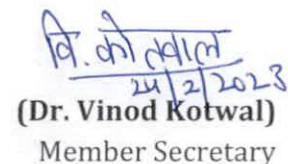 वि. कोतवाल
24/2/2023
(Dr. Vinod Kotwal)
Member Secretary